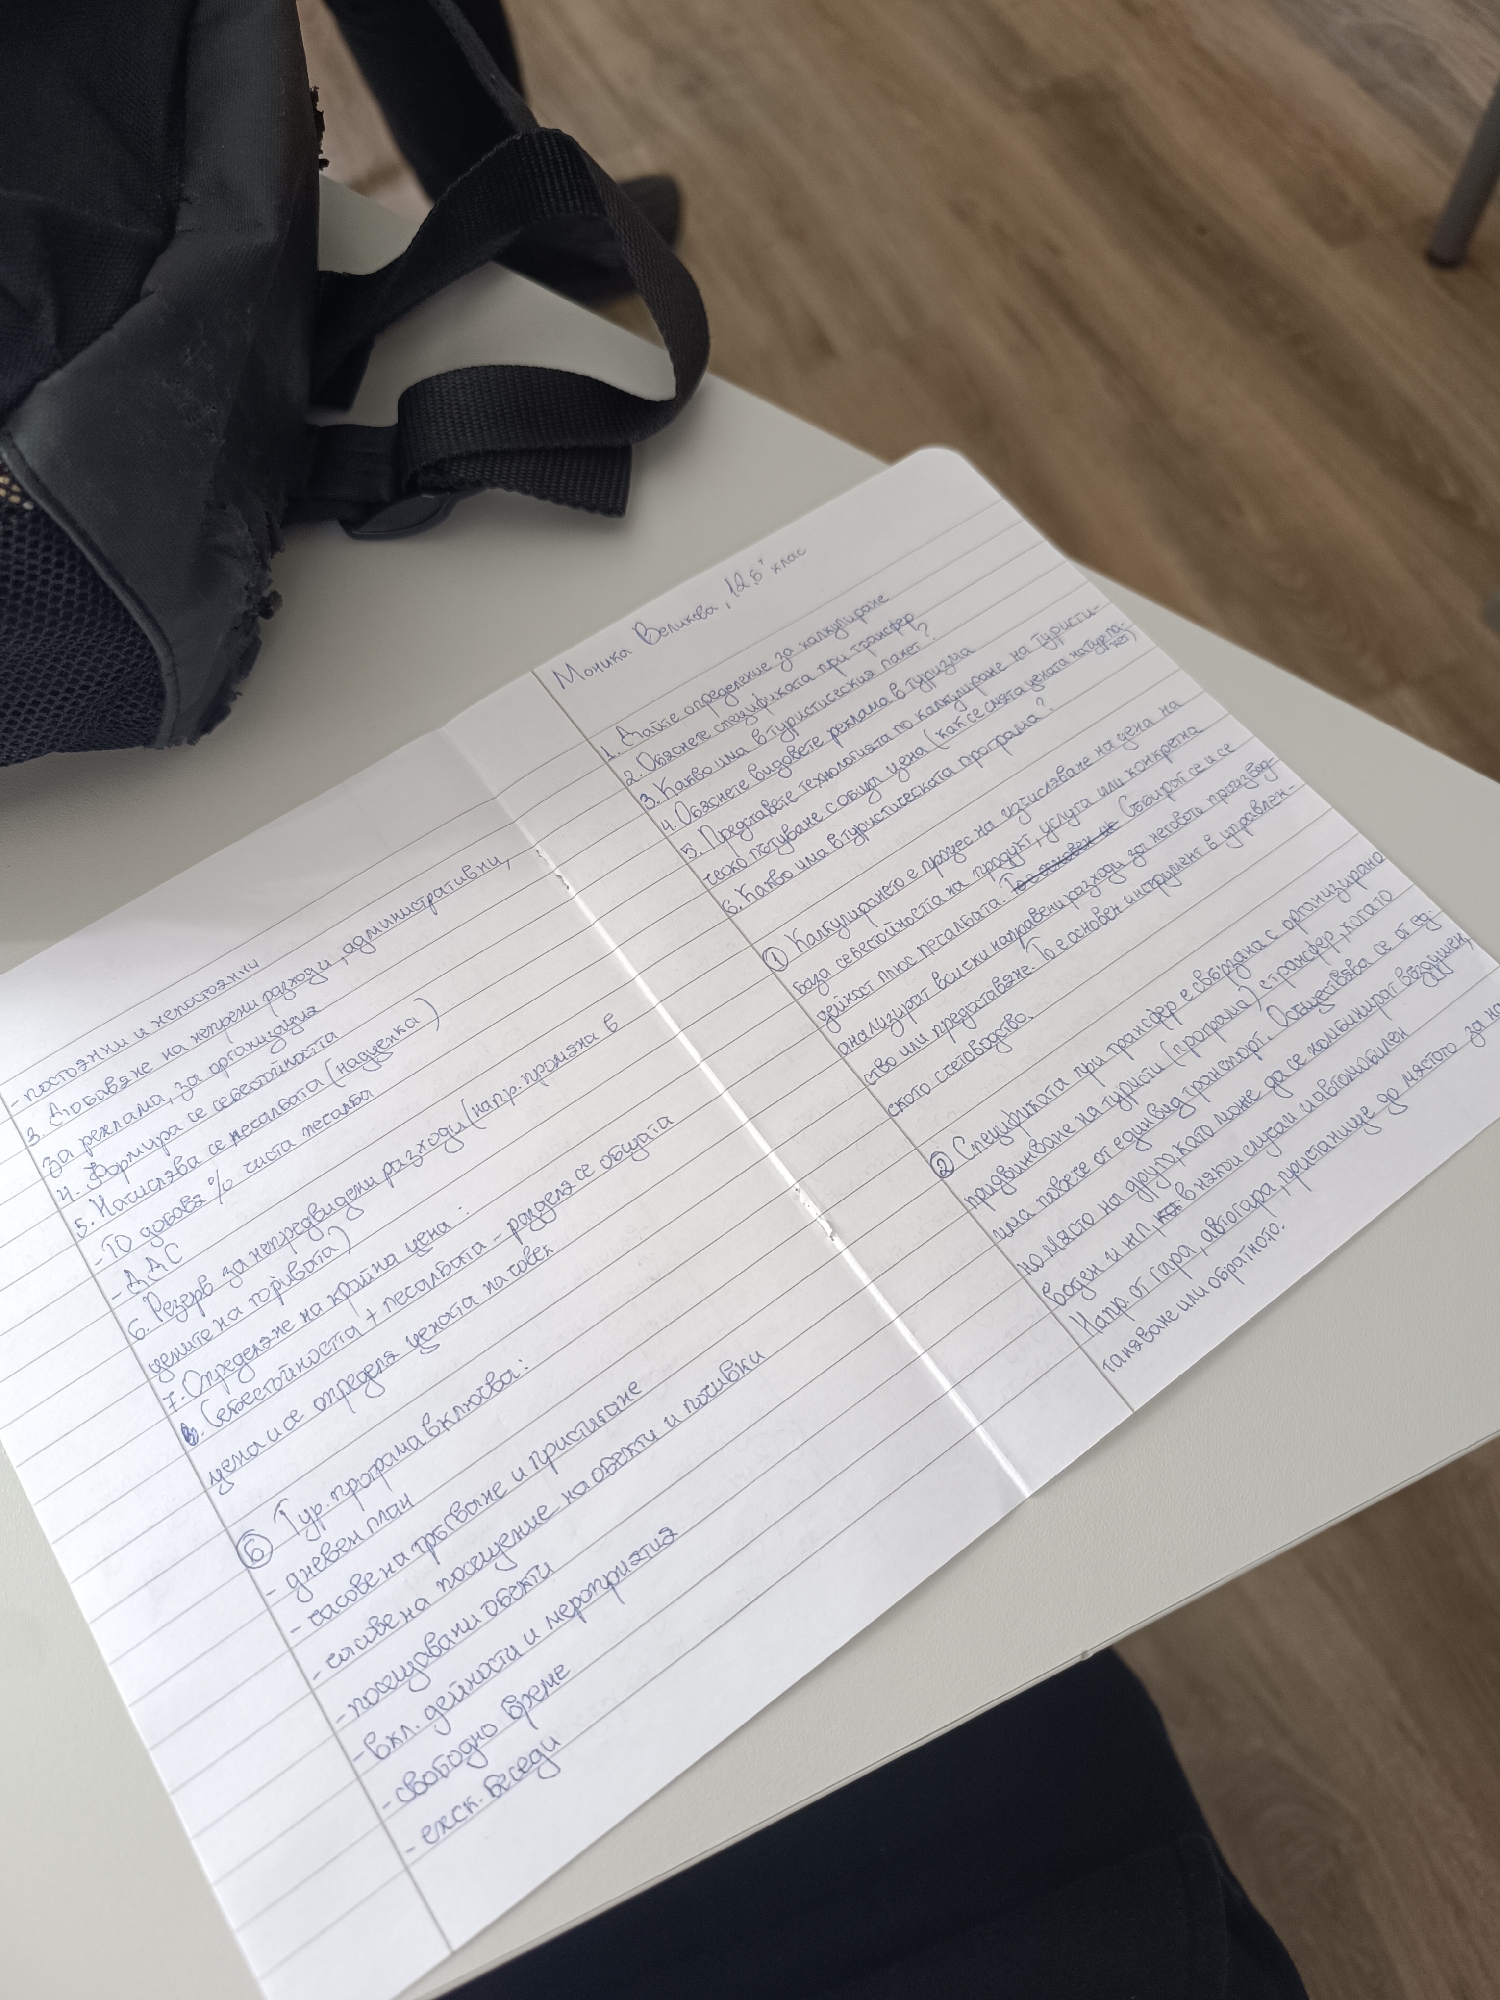 Моника Великова, 12 "б" клас
1. Дайте определение за калкулиране
2. Обяснете спецификата при трансфер
3. Какво има в туристическия пакет?
4. Обяснете видовете реклама в туризма
5. Представете технологията по калкулиране на туристи-
ческо пътуване с обща цена (как се смята цената на турпа-
кет)
6. Какво има в туристическата програма?
① Калкулирането е процес на изчисляване на цена на
база себестойността на продукт, услуга или конкретна
дейност плюс печалбата. Събират се и се
анализират всички направени разходи за неговото производ-
ство или предоставяне. То е основен инструмент в управлен-
ското счетоводство.
② Спецификата при трансфер е свързана с организирано
придвижване на туристи (програма) с трансфер, когато
има повече от един вид транспорт. Осъществява се от ед-
но място на друго, като може да се комбинират въздушен,
воден и жп, в някои случаи и автомобилен
Напр. от гара, автогара, пристанище до мястото за нас-
таняване или обратното.
- постоянни и непостоянни
3. Добавяне на непреки разходи, административни,
за реклама, за организация
4. Формира се себестойността
5. Начислява се печалбата (надценка)
- ТО добавя % чиста печалба
- ДДС
6. Резерв за непредвидени разходи (напр. промяна в
цените на горивата)
7. Определяне на крайна цена:
8. Себестойността + печалбата - разделя се общата
цена и се определя цената на човек
⑥ Тур. програма включва:
- дневен план
- часове на тръгване и пристигане
- часове на посещение на обекти и почивки
- посещавани обекти
- вкл. дейности и мероприятия
- свободно време
- екск. беседи